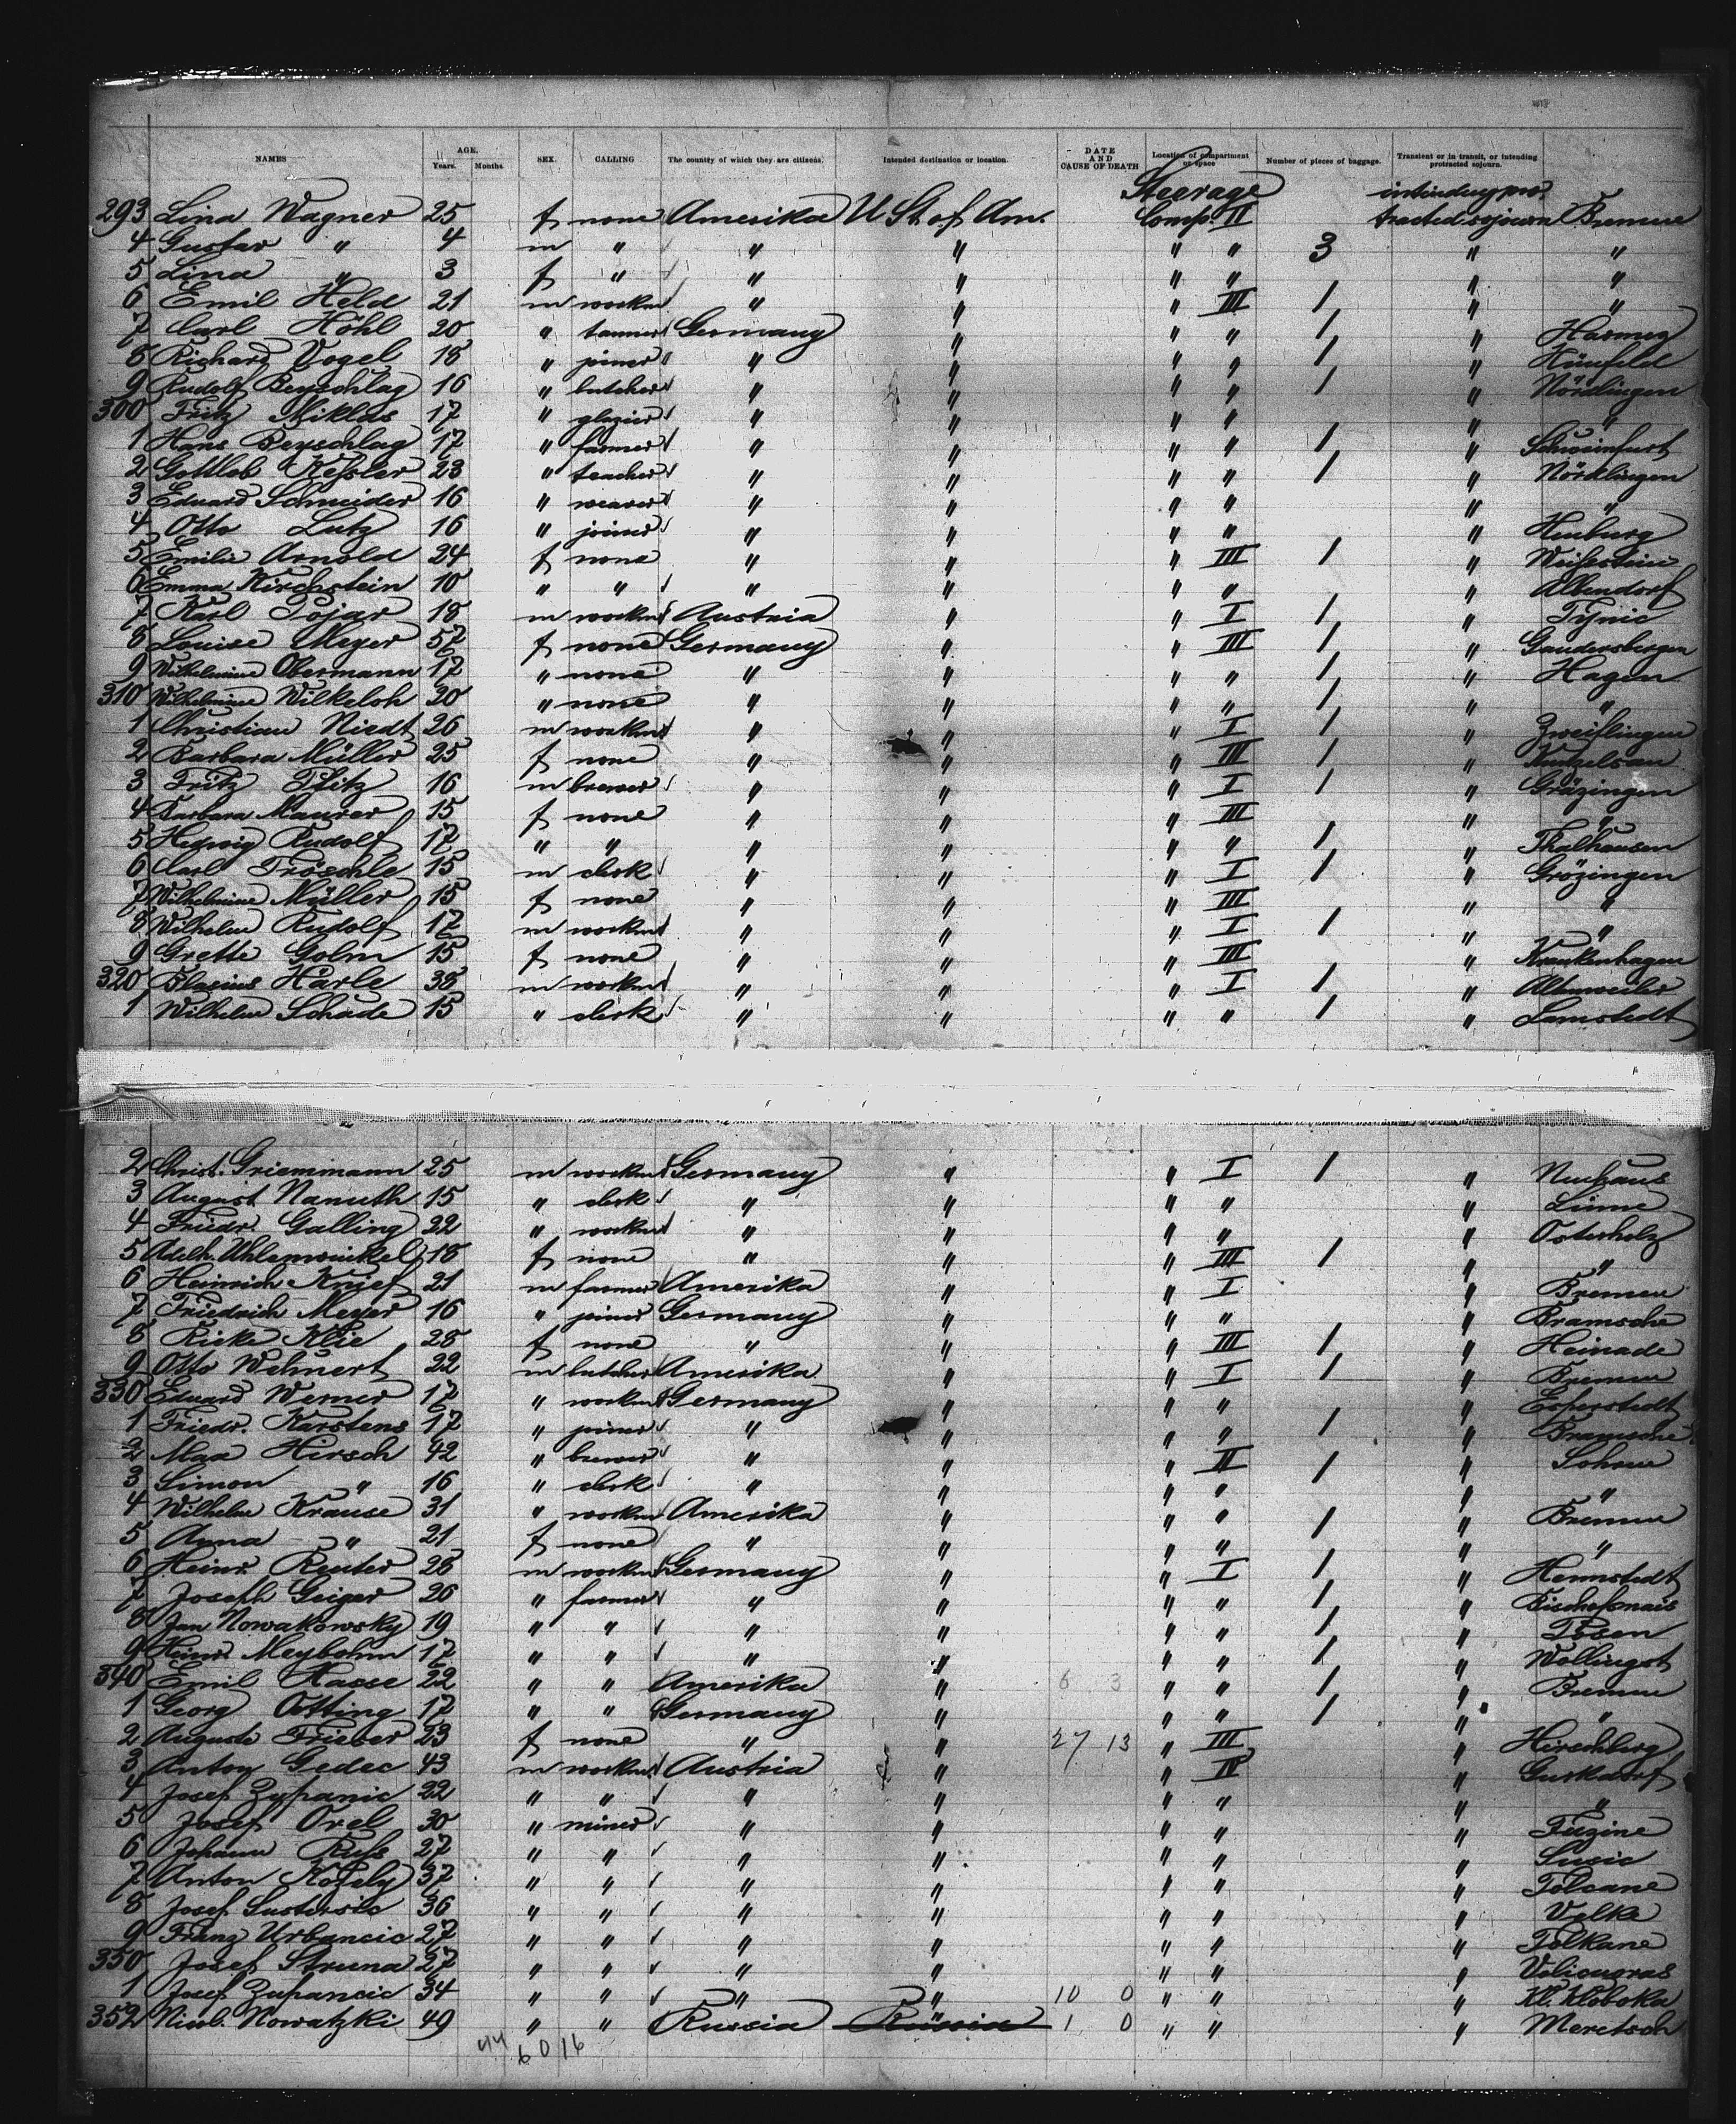 NAMES AGE. Years. Months. SEX. CALLING The country of which they are citizens. Intended destination or location. DATE AND CAUSE OF DEATH Location of compartment or space Number of pieces of baggage. Transient or in transit, or intending protracted sojourn.
Steerage intending pro-
293 Lina Wagner 25 f none Amerika U St. of Am. Comp. II tracted sojourn Bremen
4 Gustav " 4 m " " " " " 3 " "
5 Lina " 3 f " " " " " " "
6 Emil Held 21 m workm " " " III 1 " "
7 Carl Höhl 20 " tanner Germany " " " 1 "
8 Richard Vogel 18 " joiner " " " " 1 " Hünfeld
9 Rudolf Beyschlag 16 " butcher " " " " 1 " Nördlingen
300 Fritz Miklas 17 " glazier " " " " " "
1 Hans Beyschlag 17 " farmer " " " " 1 " Schweinfurt
2 Gottlob Kessler 23 " teacher " " " " 1 " Nördlingen
3 Eduard Schneider 16 " weaver " " " " " "
4 Otto Lutz 16 " joiner " " " " "
5 Emilie Arnold 24 f none " " " III 1 " Weissstein
6 Emma Kirchstein 10 " " " " " " " Albendorf
7 Karl Pojar 18 m workm Austria " " I 1 " Tynic
8 Louise Meyer 57 f none Germany " " III 1 " Gandersbergen
9 Wilhelmine Obermann 17 " none " " " " 1 " Hagen
310 Wilhelmine Wilkeloh 20 " none " " " " 1 " "
1 Christian Nirdt 26 m workm " " " I 1 " Zweiflingen
2 Barbara Müller 25 f none " " " III 1 " Künzelsau
3 Fritz 16 m brewer " " " I 1 " Grözingen
4 Barbara Maurer 15 f none " " " III " "
5 Hedwig Rudolf 17 " " " " " " 1 " Thalhausen
6 Carl Fröschle 15 m clerk " " " I 1 " Grözingen
7 Wilhelmine Müller 15 f none " " " III " "
8 Wilhelm Rudolf 17 m workm " " " I 1 " "
9 Grette Golm 15 f none " " " III " Krankenhagen
320 Blasius Härle 38 m workm " " " I 1 " Altenweiler
1 Wilhelm Schade 15 " clerk " " " " 1 " Lamstedt
2 Christ. Griemmann 25 m workm Germany " " I 1 " Neuhaus
3 August Namuth 15 " clerk " " " " " Linne
4 Friedr. Galling 22 " workm " " " " " Osterholz
5 Adelh. Uhlenwinkel 18 f none " " " III 1 " "
6 Heinrich Knief 21 m farmer Amerika " " I " Bremen
7 Friedrich Meyer 16 " joiner Germany " " " " Bramsche
8 Rieke Klie 28 f none " " " III 1 " Heinade
9 Otto Wehnert 22 m butcher Amerika " " I 1 " Bremen
330 Eduard Werner 17 " workm Germany " " " " Esperstedt
1 Friedr. Karstens 17 " joiner " " " " 1 " Bramsche
2 Max Hirsch 42 " brewer " " " II 1 " Sohren
3 Simon " 16 " clerk " " " " " "
4 Wilhelm Krause 31 " workm Amerika " " " 1 " Bremen
5 Anna " 21 f none " " " " " "
6 Heinr. Reuter 28 m workm Germany " " I 1 " Hennstedt
7 Joseph Geiger 26 " farmer " " " " 1 " Bischofsmais
8 Jan Nowakowsky 19 " " " " " " 1 " Posen
9 Heinr. Meybohm 17 " " " " " " 1 " Wollingst
340 Emil Hasse 22 " " Amerika " 6 3 " " 1 " Bremen
1 Georg Oetting 17 " " Germany " " " 1 " "
2 Auguste Frieber 23 f none " " 27 13 " III " Hirschberg
3 Anton Gedec 43 m workm Austria " " IV "
4 Josef Zupanic 22 " " " " " " " "
5 Josef Orel 30 " miner " " " " " Fuzine
6 Johann Russ 27 " " " " " " " Susic
7 Anton Kozely 37 " " " " " " " Polcane
8 Josef Sustersic 36 " " " " " " " Velke
9 Franz Urbancic 27 " " " " " " " Polkane
350 Josef Struna 27 " " " " " " "
1 Josef Zupancic 34 " " " " 10 0 " " " Kl. Kloboka
352 Nicol. Nowatzki 49 " " Russia Russia 1 0 " " " Meretsch
44 6 0 16